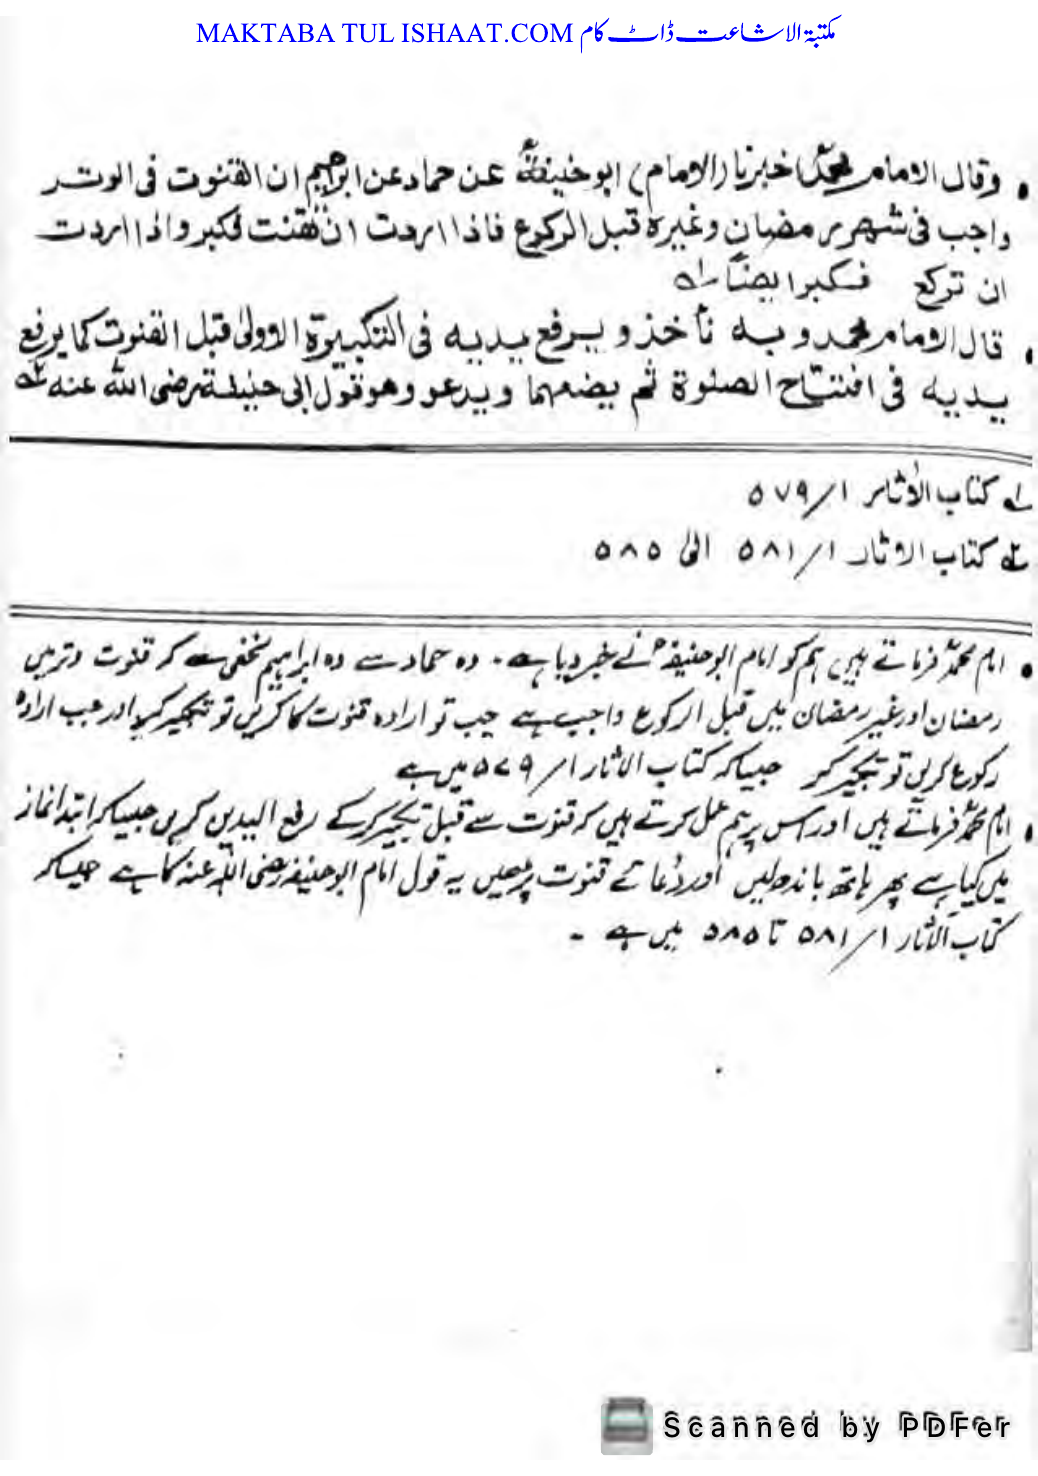 MAKTABA TUL ISHAAT.COM مکتبۃ الاشاعت ڈاٹ کام
• وقال الامام محمدؒ اخبرنا (الامام) ابو حنيفةؒ عن حماد عن ابراهيم ان القنوت فى الوتر
واجب فى شهر رمضان وغيره قبل الركوع فاذا اردت ان تقنت فكبر واذا اردت
ان تركع فكبر ايضاً ۱ے
• قال الامام محمد وبه نأخذ ويرفع يديه فى التكبيرة الاولىٰ قبل القنوت كما يرفع
يديه فى افتتاح الصلوة ثم يضعهما ويدعو وهو قول ابى حنيفة رضى الله عنه ۲ے
۱ے كتاب الاٰثار ۱/۵۷۹
۲ے كتاب الاٰثار ۱/۵۸۱ الىٰ ۵۸۵
• امام محمدؒ فرماتے ہیں ہم کو امام ابو حنیفہؒ نے خبر دیا ہے۔ وہ حماد سے وہ ابراہیم نخعی سے کہ قنوت وتر میں
رمضان اور غیر رمضان میں قبل الرکوع واجب ہے جب تو ارادہ قنوت کا کریں تو تکبیر کر اور جب ارادہ
رکوع کریں تو تکبیر کر جیسا کہ کتاب الاٰثار ۱/۵۷۹ میں ہے
• امام محمدؒ فرماتے ہیں اور اس پر ہم عمل کرتے ہیں کہ قنوت سے قبل تکبیر کرکے رفع الیدین کریں جیسا کہ ابتدا نماز
میں کیا ہے پھر ہاتھ باندھ لیں اور دُعائے قنوت پڑھیں یہ قول امام ابو حنیفہ رضی اللہ عنہ کا ہے جیسا کہ
کتاب الاٰثار ۱/۵۸۱ تا ۵۸۵ میں ہے ۔
Scanned by PDFer